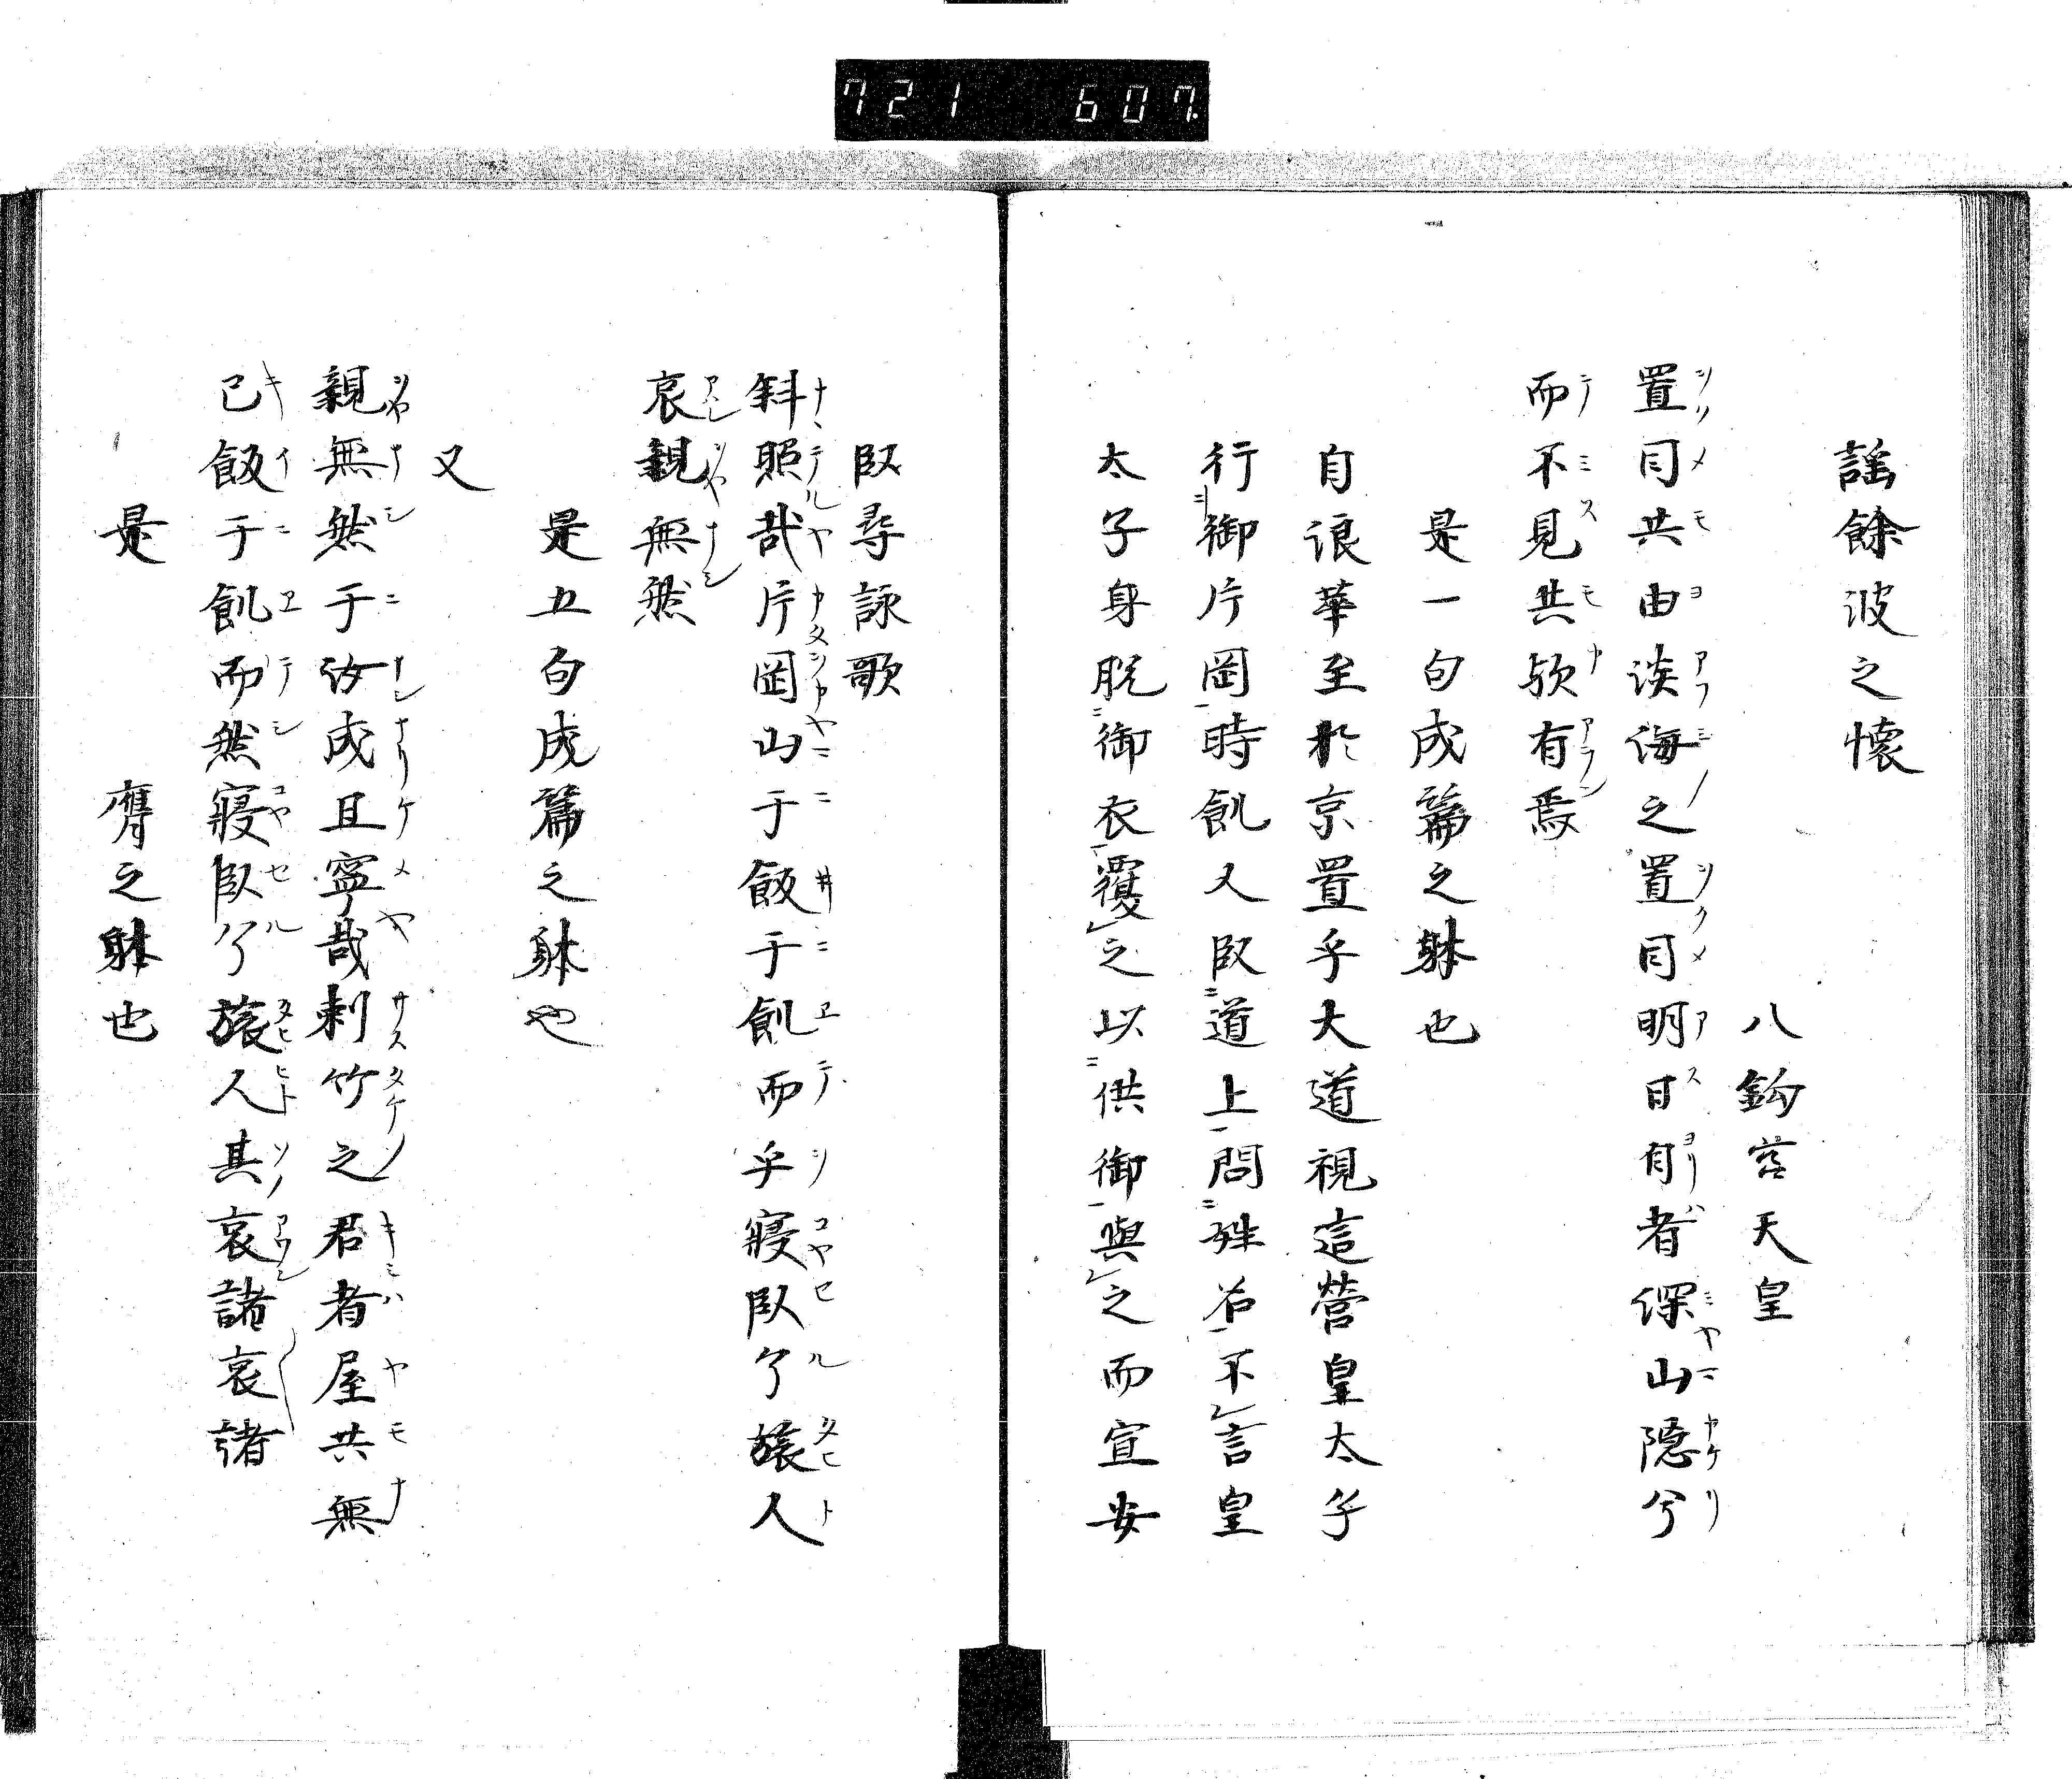 721 607.
謡餘波之懐
八鈎宮天皇
置目共由淡海之置目明日自者深山隠兮
而不見共欤有焉
是一句成篇之躰也
自浪華至於京置乎大道視這營皇太子
行御片岡時飢人臥道上問姓名不言皇
太子身脱御衣覆之以供御與之而宣安
臥尋詠歌
斜照哉片岡山于飯于飢而乎寝臥兮旅人
哀親無然
是五句成篇之躰也
又
親無然于汝成且寧哉刺竹之君者屋共無
已飯于飢而然寝臥兮旅人其哀諸哀諸
是 膺之躰也